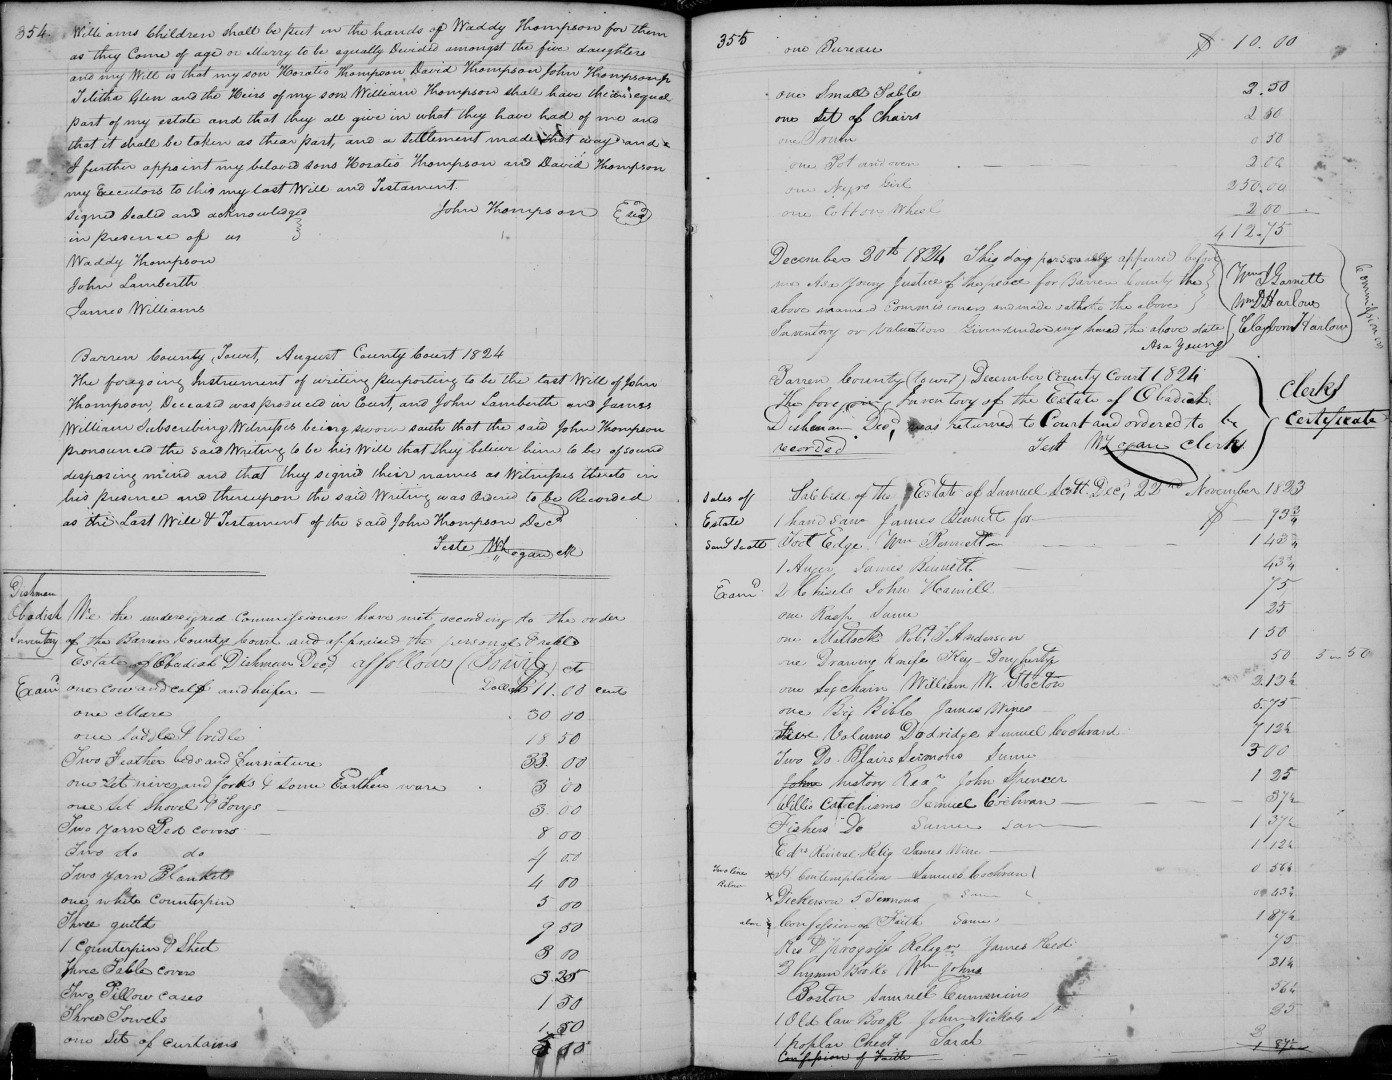 354.
Williams Children shall be put in the hands of Waddy Thompson for them
as they Come of age or Marry to be equally Devided amongst the five daughters
and my Will is that my son Horatio Thompson David Thompson John Thompson
Telitha Glen and the Heirs of my son William Thompson shall have their equal
part of my estate and that they all give in what they have had of me and
that it shall be taken as thear part, and a settlement made that way and
I further appoint my beloved sons Horatio Thompson and David Thompson
my Executors to this my last Will and Testament.
signed Sealed and acknowledged John Thompson seal
in presence of us
Waddy Thompson
John Lamberth
James Williams
Barren County, Towit, August County Court 1824
The foregoing Instrument of writing purporting to be the last Will of John
Thompson, Deceased was produced in Court, and John Lamberth and James
William Subscribing Witnesses being sworn saith that the said John Thompson
pronounced the said Writing to be his Will that they believe him to be of sound
disposing mind and that they signd their names as Witnesses thereto in
his presence and thereupon the said Writing was Ordered to be Recorded
as the Last Will & Testament of the said John Thompson Decd
Teste Wm Logan Clk
Dishman
Obadiah
Inventory
We the undersigned Commissioners have met according to the order
of the Barren County Court and appraised the personal
Estate of Obadiah Dishman Decd as follows (Towit) $ cts
Examd one cow and calf and heifer — Dollars $11.00 cents
one Mare 30 00
one Saddle & bridle 18 50
Two Feather beds and furniture 33. 00
one set nives and forks & some Earthen ware 3 00
one set Shovel & Tongs — 3. 00
Two yarn Bed covers — 8 00
Two do do 4 00
Two yarn Blankets 4 00
one white Counterpin 5 00
Three quilts 9 50
1 Counterpin & Sheet 3 00
three Table covers 3 25
Two Pillow cases 1 50
Three Towels 1 50
one Set of curtains 00
355
one Bureau $ 10. 00
one Small Table 2. 50
one Set of Chairs 2 50
one 0 50
one Pot and oven 2 00
one Negro Girl 250.00
one Cotton Wheel 2 00
412-75
December 20th 1824 This day personally appeared before
me Asa Young Justice of the peace for Barren County the
above named Commissioners and made oath to the above
Inventory or Valuation Given under my hand the above date
Asa Young
Wm J Garnett
Wm D Harlow
Claybon Harlow
Commissioners
Barren County (towit) December County Court 1824
The foregoing Inventory of the Estate of Obadiah
Dishman Decd, was returned to Court and ordered to be
recorded Test Wm Logan Clerk
Clerks
Certificate
Sales of
Estate
Saml Scott
Examd
Salebill of the Estate of Samuel Scott Decd 22nd November 1823
1 hand saw James Bennett for $ — 93¾
Foot Edge Wm Bennett 1 43¾
1 Auger James Bennett — 43¾
2 Chisels John 75
one Rasp Same 25
one Mattock Robt S Anderson 1 50
one Drawing knife Dougherty 50 5-50
one Log chain William W. Stocton 2.12½
one Big Bible James Wines 5.75
Volums Dodridge Samuel Cochran 7 12½
Two Do. Blairs Sermons Same 3 00
history John Spencer 1 25
Catechisms Samuel Cochran — 37½
Fishers Do Same 1 37½
Eds Revival Relig James Wine — 1 12½
Two lines
Below
x Contemplation — Samuel Cochran 0 56¼
x Dickerson 5 Sermons Same 43¾
above Confession of Faith Same 1 87½
Relign James Reed 75
3 hymn Books Wm Johns 31¼
Boston Samuel Cummins 36¼
1 Old law Book John Nickols 25
1 poplar Chest Sarah 2
Confession of Faith 1 87½